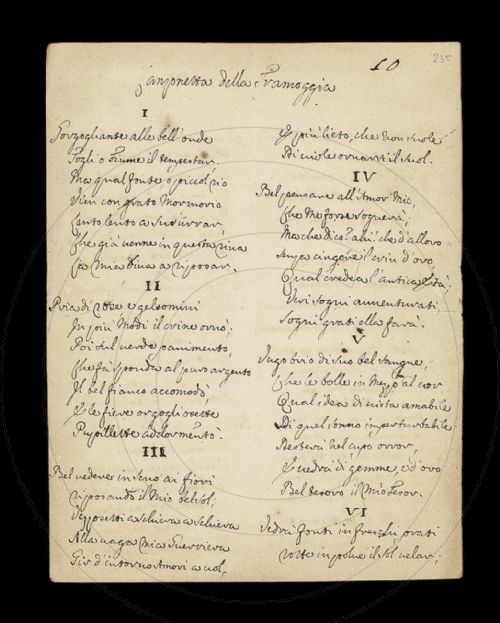 10
235
Canzonetta della Framoggia
I
Gorgogliante alle bell'onde
Togli o Fiume il tempestar.
Ma qual fonte o piccol rio
Vien con grato mormorio
Lento lento a susurrar
Che già venne in questa riva
La mia Diva a riposar.
II
Pria di rose e gelsomini
In più modi il crine ornò;
Poi sul verde pavimento,
Che fà sponda al puro argento
Il bel fianco accomodò
E le fiere orgogliosette
Pupillette addormentò.
III
Bel vedere in seno ai fiori
riposando il mio bel sol;
Vezzosetti a schiera a schiera
Alla vaga mia Guerriera
Gir d'intorno Amori a vol,
E più lieto, che non suole
Di viole ornarsi il suol.
IV
Bel pensare all'Amor mio,
Che me forse sognerà;
Ma che dico? ahi! che d'alloro
Senza cingere il crin d'oro
Qual credea l'antica età;
Veri sogni avventurati,
Sogni grati ella farà.
V
Sugo brio di suo bel sangue,
Che le bolle in mezzo al cor
Qual idea di vista amabile
Di quel sonno imperturbabile
Desterà nel cupo orror,
E vedrà di gemme, e d'oro
Bel tesoro il mio tesor.
VI
Vedrà fonti in freschi prati
volte in polve il sol velar;